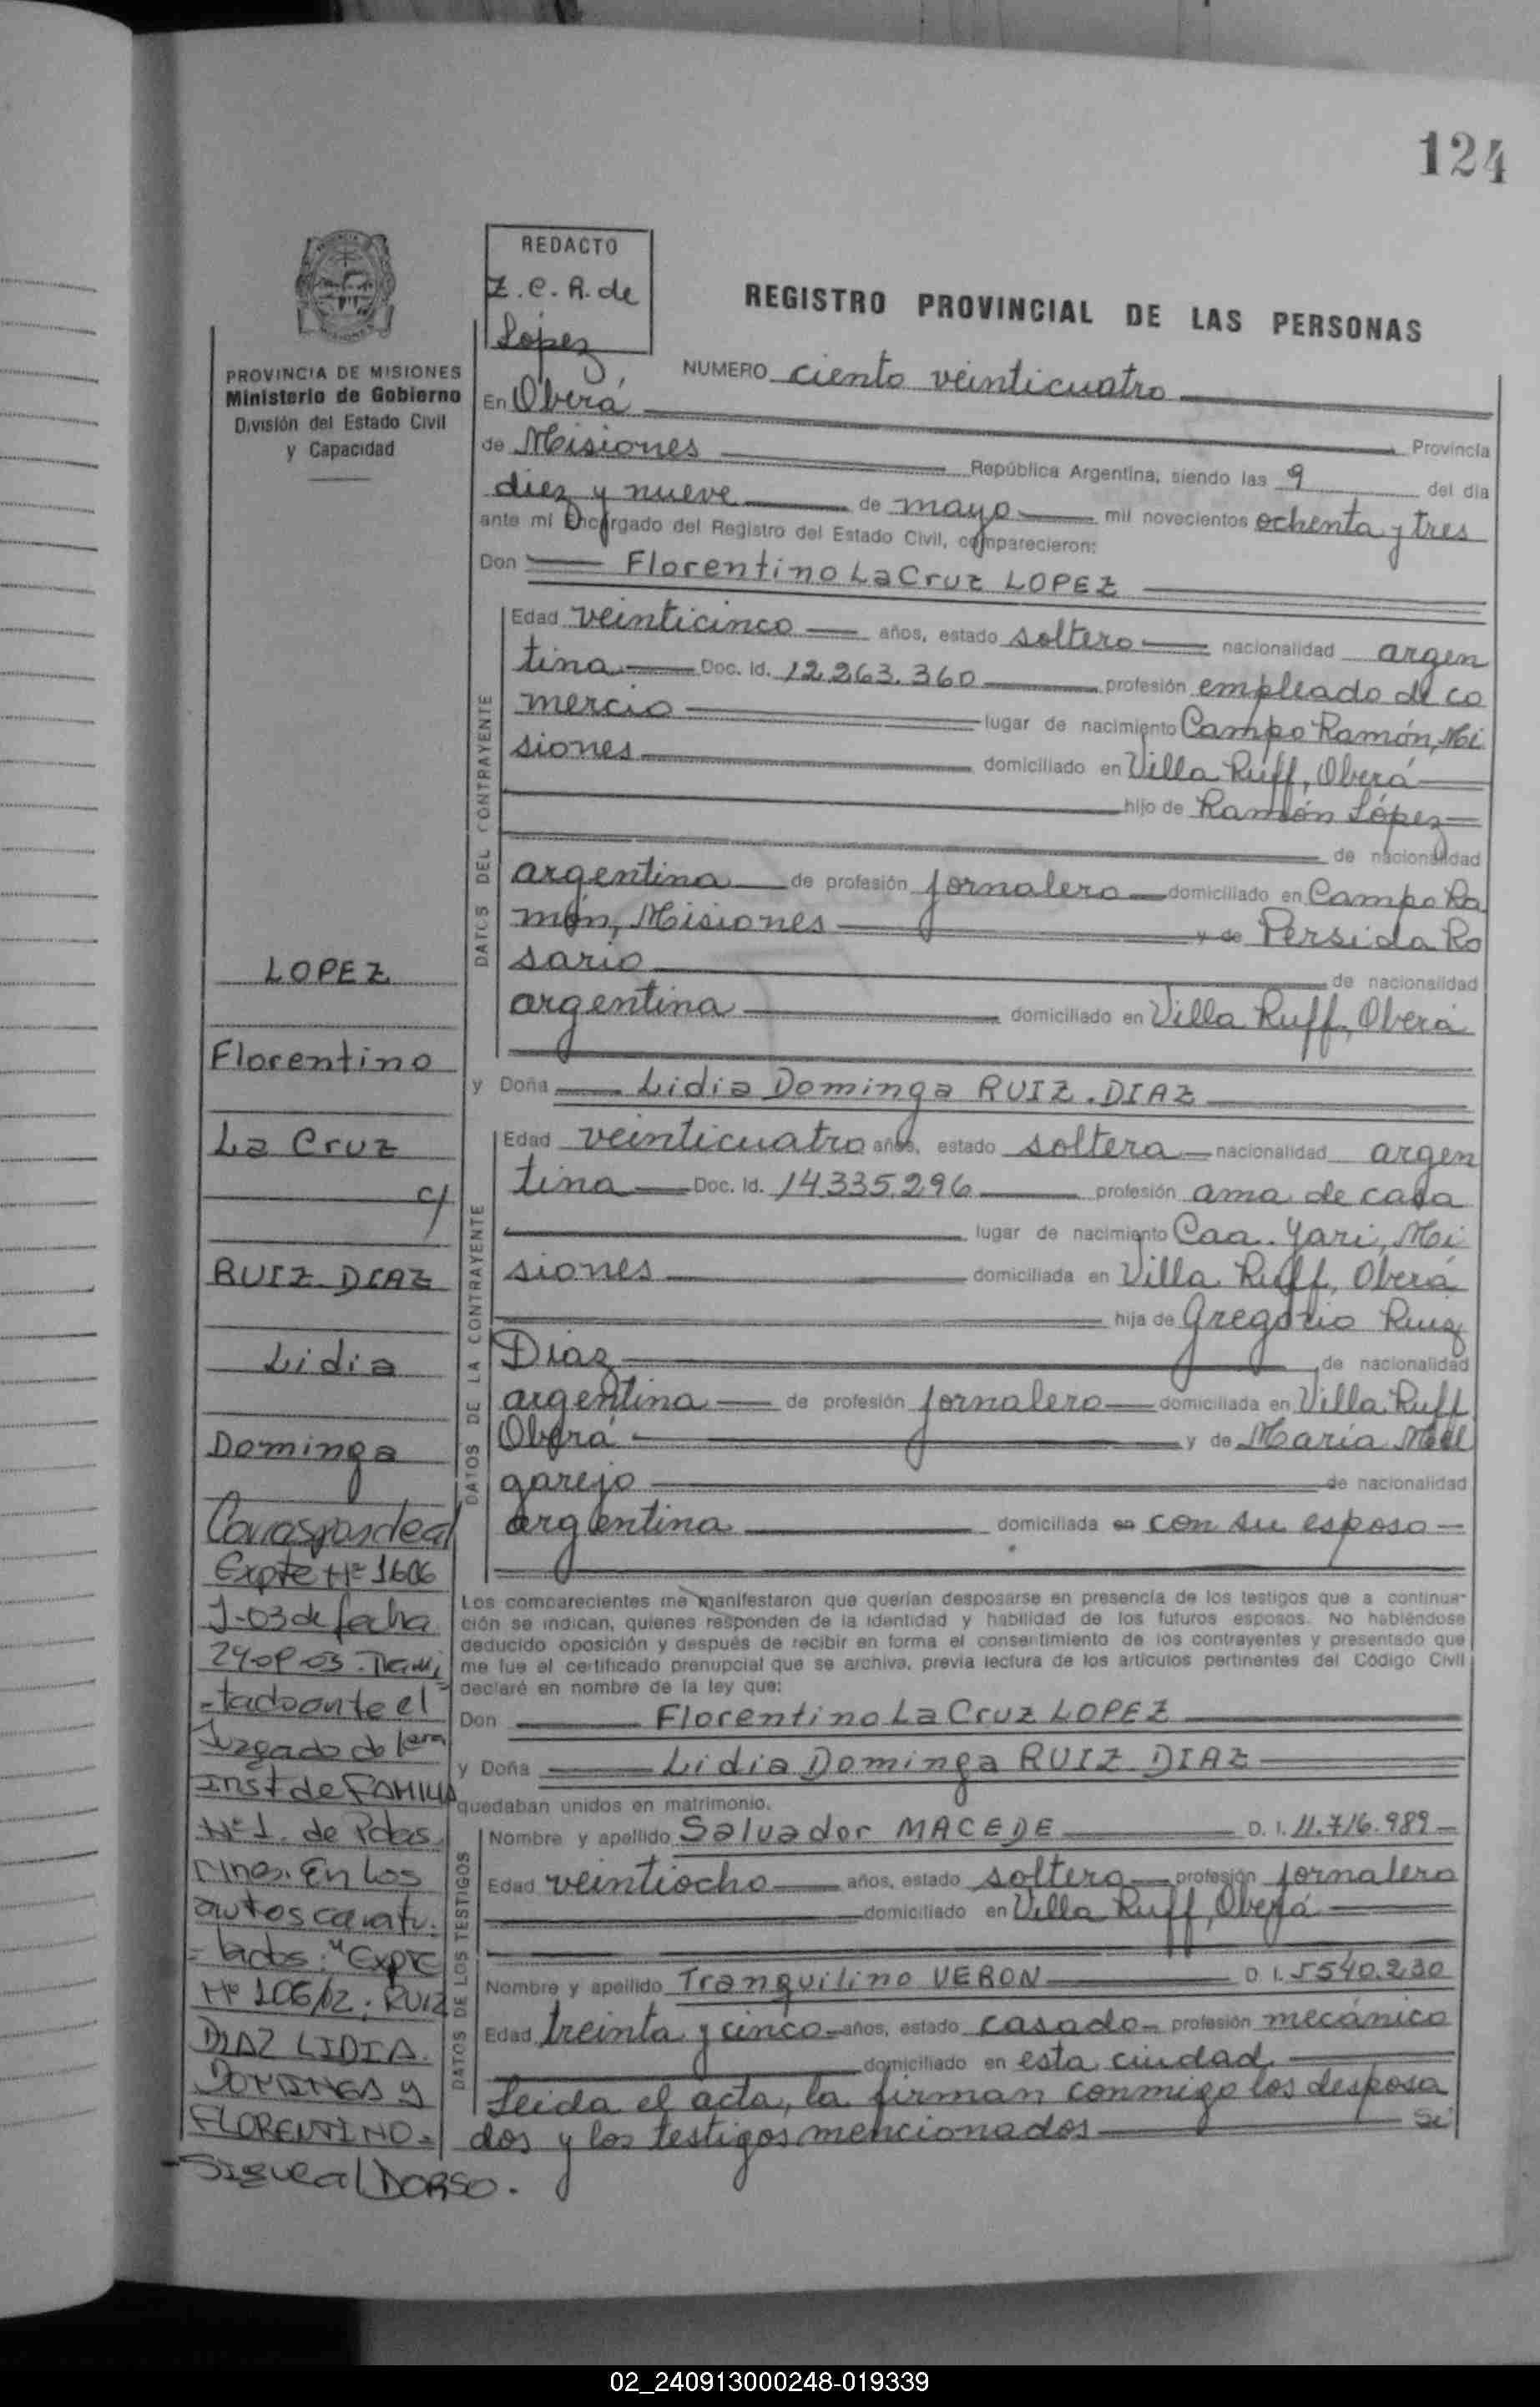 124
REDACTO
Z. C. R. de
López
REGISTRO PROVINCIAL DE LAS PERSONAS
PROVINCIA DE MISIONES
Ministerio de Gobierno
División del Estado Civil
y Capacidad
NUMERO ciento veinticuatro
En Oberá Provincia
de Misiones República Argentina, siendo las 9 del día
diez y nueve de mayo mil novecientos ochenta y tres
ante mi Encargado del Registro del Estado Civil, comparecieron:
Don Florentino La Cruz LOPEZ
DATOS DEL CONTRAYENTE
Edad veinticinco años, estado soltero nacionalidad argen
tina Doc. Id. 12.263.360 profesión empleado de co
mercio lugar de nacimiento Campo Ramón, Mi
siones domiciliado en Villa Ruff, Oberá
hijo de Ramón López
de nacionalidad
argentina de profesión jornalero domiciliado en Campo Ra
món, Misiones y de Persida Ro
sario de nacionalidad
argentina domiciliado en Villa Ruff, Oberá
y Doña Lidia Dominga RUIZ. DIAZ
DATOS DE LA CONTRAYENTE
Edad veinticuatro años, estado soltera nacionalidad argen
tina Doc. Id. 14335.296 profesión ama de casa
lugar de nacimiento Caa. Yari, Mi
siones domiciliada en Villa Ruff, Oberá
hija de Gregorio Ruiz
Díaz de nacionalidad
argentina de profesión jornalero domiciliada en Villa Ruff
Oberá y de María Mel
garejo de nacionalidad
argentina domiciliada en con su esposo
Los comparecientes me manifestaron que querían desposarse en presencia de los testigos que a continua-
ción se indican, quienes responden de la identidad y habilidad de los futuros esposos. No habiéndose
deducido oposición y después de recibir en forma el consentimiento de los contrayentes y presentado que
me fue el certificado prenupcial que se archiva, previa lectura de los artículos pertinentes del Código Civil
declaré en nombre de la ley que:
Don Florentino La Cruz LOPEZ
y Doña Lidia Dominga RUIZ. DIAZ
quedaban unidos en matrimonio.
DATOS DE LOS TESTIGOS
Nombre y apellido Salvador MACEDE D. I. 11.716.989
Edad veintiocho años, estado soltero profesión jornalero
domiciliado en Villa Ruff, Oberá
Nombre y apellido Tranquilino VERON D. I. 5540.230
Edad treinta y cinco años, estado casado profesión mecánico
domiciliado en esta ciudad
Leida el acta, la firman conmigo los desposa
dos y los testigos mencionados Si
LOPEZ
Florentino
La Cruz
c/
RUIZ. DIAZ
Lidia
Dominga
Corresponde al
Expte Nº 1606
J-03 de fecha
Trami
-tado ante el
Juzgado de 1era
Inst de FAMILIA
Nº 1. de Posas
En Los
autos caratu.
= lados: "Expte
Nº 106/02. RUIZ
DIAZ LIDIA.
DOMINGA y
FLORENTINO=
-Sigue al DORSO.
02_240913000248-019339